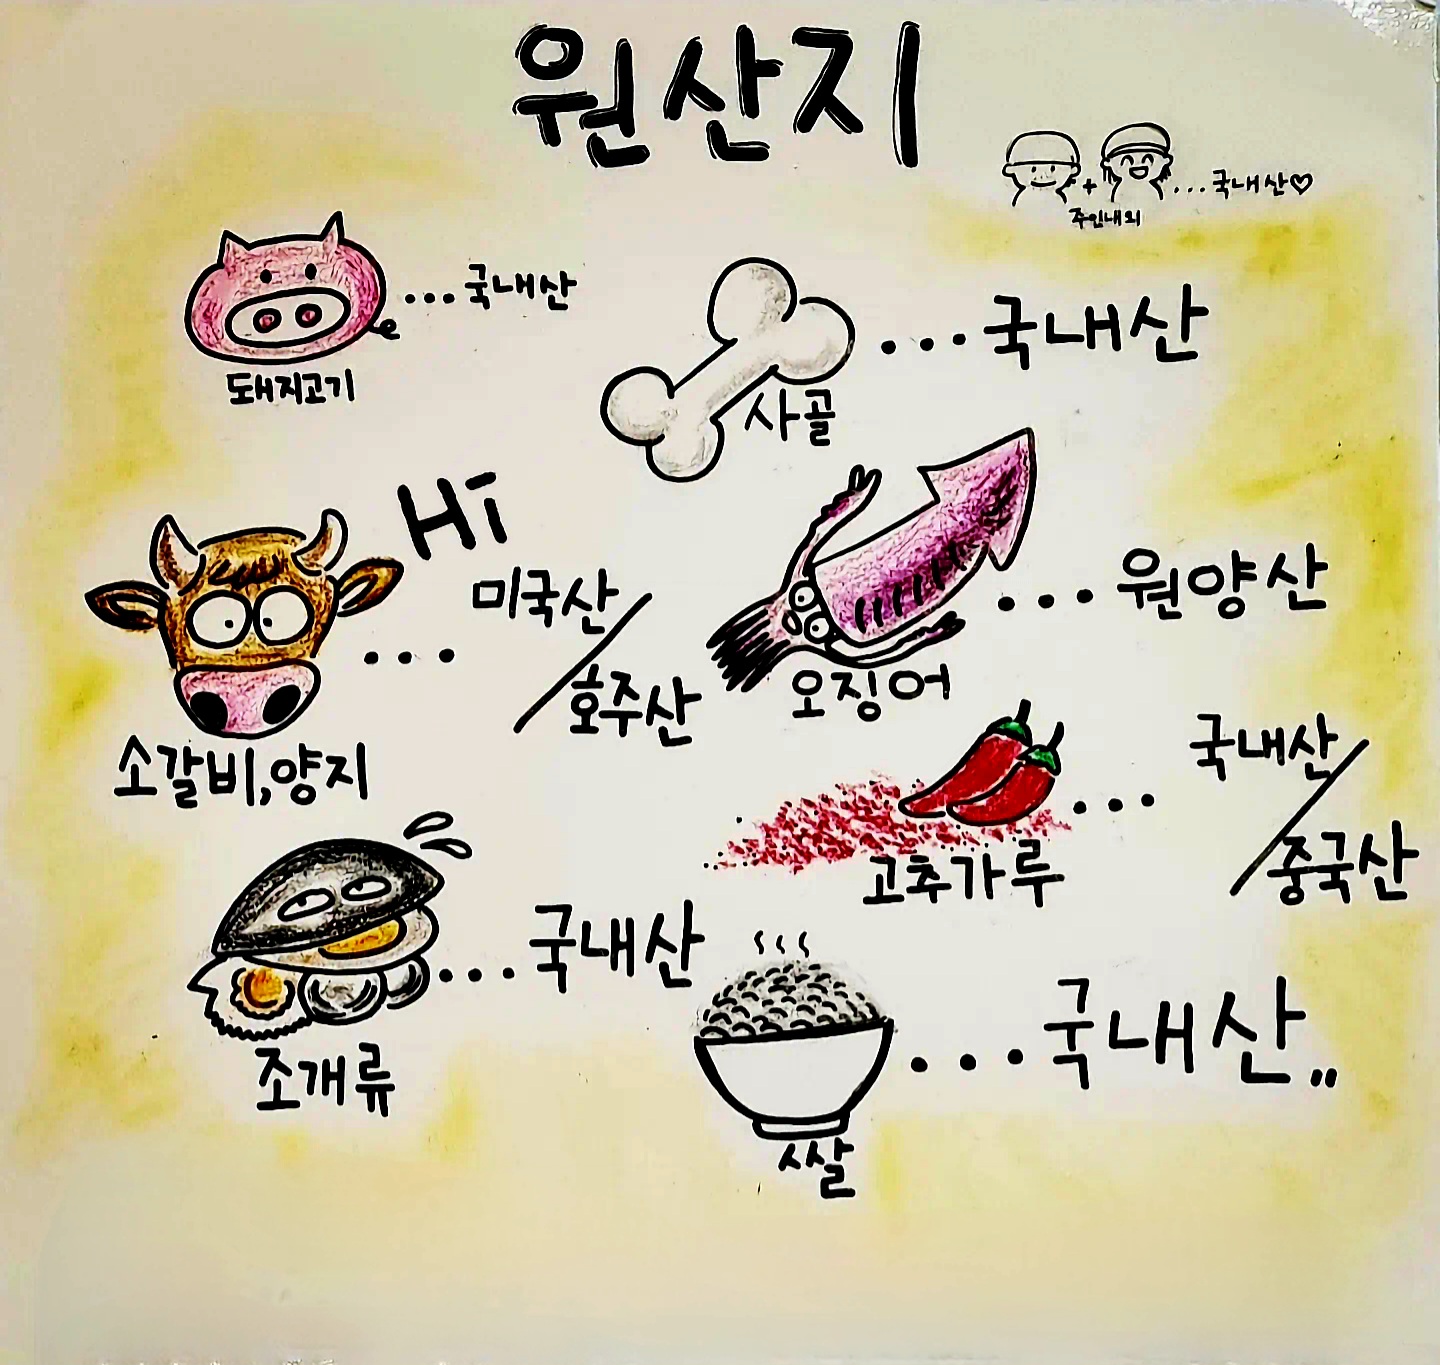 원산지
주인내외 ...국내산♡
돼지고기 ...국내산
사골 ...국내산
Hi
소갈비,양지 ... 미국산/호주산
오징어 ...원양산
고추가루 ... 국내산/중국산
조개류 ...국내산
쌀 ...국내산..